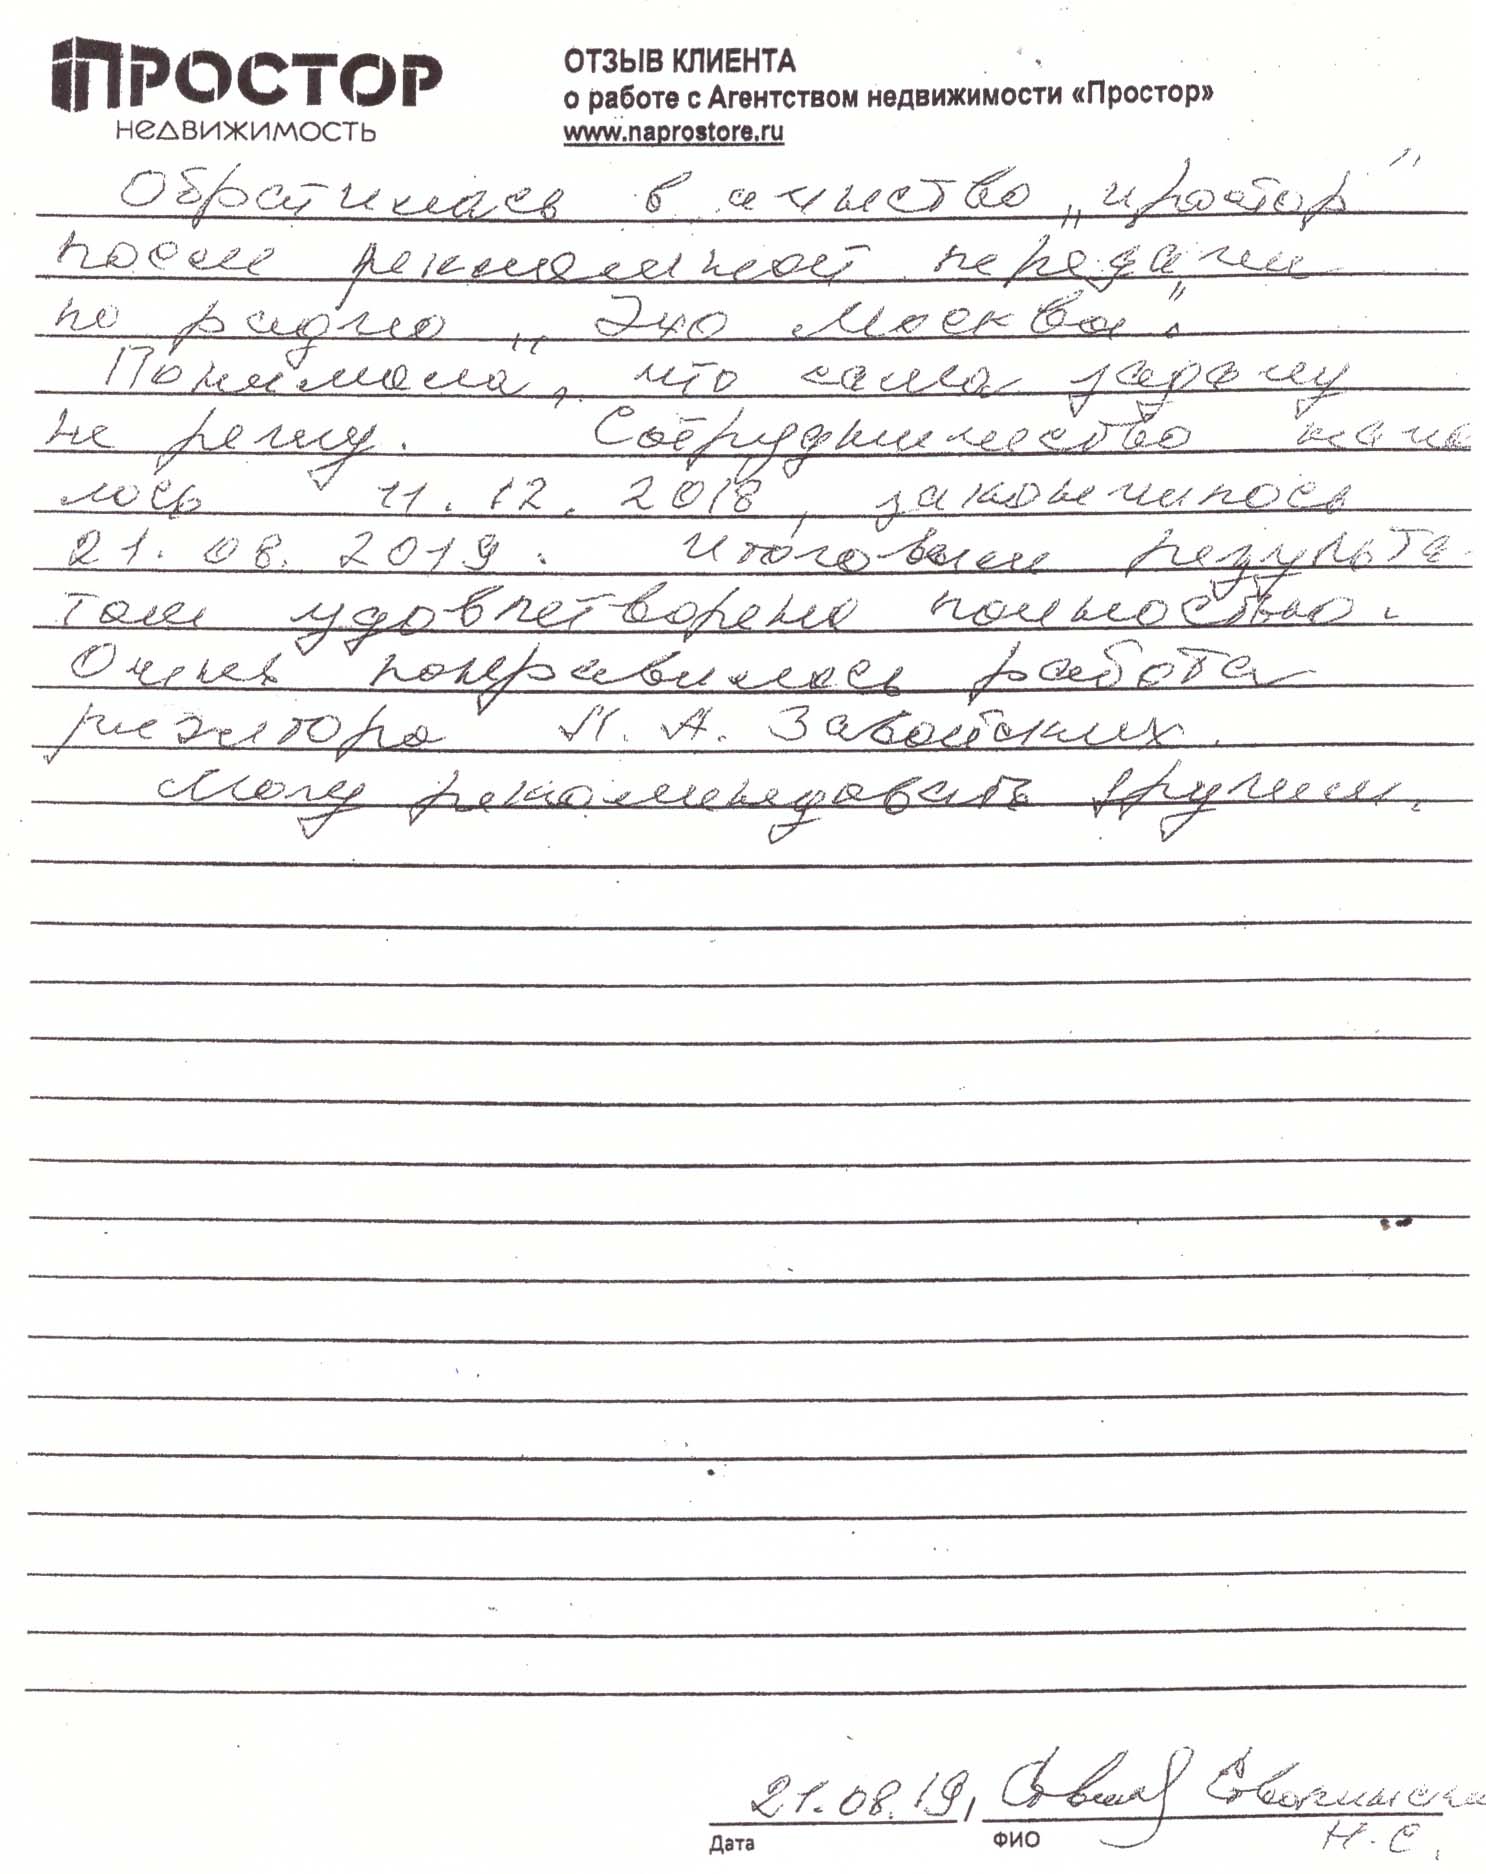 ПРОСТОР
НЕДВИЖИМОСТЬ
ОТЗЫВ КЛИЕНТА
о работе с Агентством недвижимости «Простор»
www.naprostore.ru
Обратилась в „Простор"
после рекламной передачи
по радио „Эхо Москвы".
Понимала, что сама задачу
не решу. Сотрудничество нача
лось 11.12.2018, закончилось
21.08.2019. Итоговым результа
том удовлетворена полностью.
Очень понравилась работа
риэлтора А. Завойских.
Могу рекомендовать другим.
21.08.19,
Дата
ФИО
Н.С.